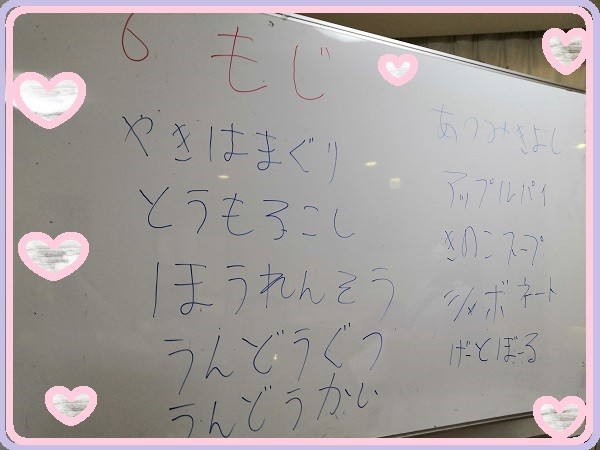 6 もじ
やきはまぐり
とうもろこし
ほうれんそう
うんどうぐつ
うんどうかい
あつみきよし
アップルパイ
きのこスープ
ジャボネート
げーとぼーる